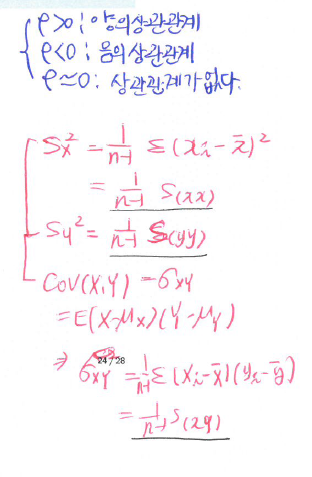 ρ>0 : 양의상관관계
ρ<0 : 음의상관관계
ρ≃0 : 상관관계가없다.
Sx² = 1/(n-1) Σ(xi - x̄)²
= 1/(n-1) S(xx)
Sy² = 1/(n-1) S(yy)
COV(X,Y) = σxy
= E(X-μx)(Y-μy)
24 / 28
⇒ σ̂xy = 1/(n-1) Σ(xi-x̄)(yi-ȳ)
= 1/(n-1) S(xy)